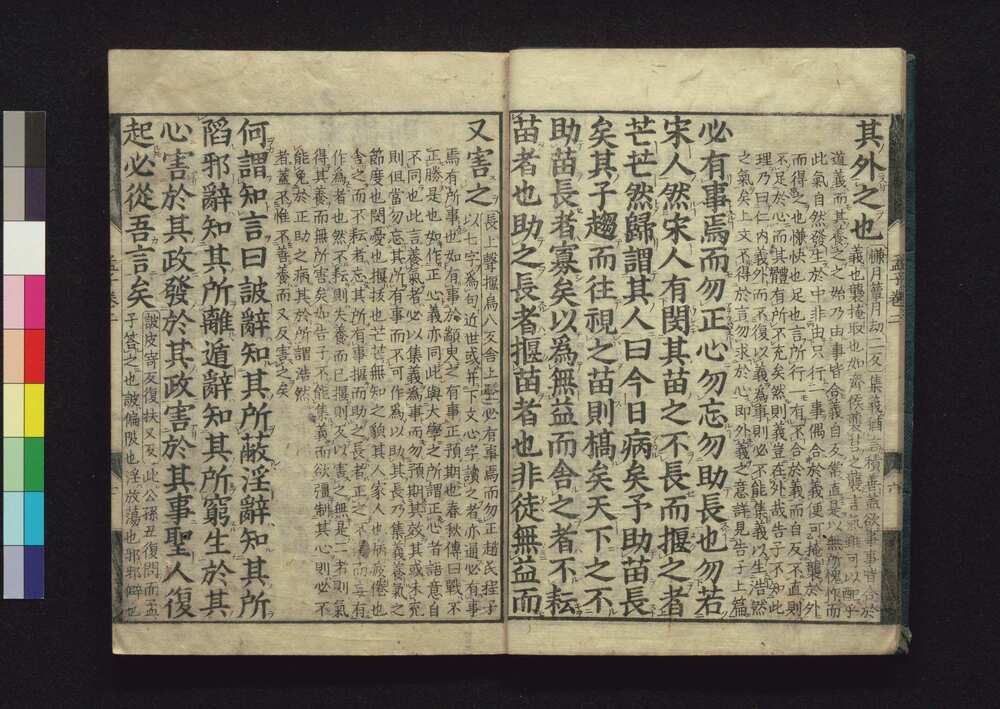 其外之也
慊口簟口劫二反集義猶言積善蓋欲事事皆合於
義也襲掩取也如齊侯襲莒之襲言氣雖可以配乎
道義而其養之之始乃由事皆合義自反常直是以無所愧怍而
此氣自然發生於中非由只行一事偶合於義便可掩襲於外
而得之也慊快也足也言所行一有不合於義而自反不直則
不足於心而其體有所不充矣然則義豈在外哉告子不知此
理乃曰仁內義外而不復以義為事則必不能集義以生浩然
之氣矣上文不得於言勿求於心即外義之意詳見告子上篇
必有事焉而勿正心勿忘勿助長也勿若
宋人然宋人有閔其苗之不長而揠之者
芒芒然歸謂其人曰今日病矣予助苗長
矣其子趨而往視之苗則槁矣天下之不
助苗長者寡矣以為無益而舍之者不耘
苗者也助之長者揠苗者也非徒無益而
又害之
長上聲揠烏八反舍上聲必有事焉而勿正趙氏程子
以七字為句近世或并下文心字讀之者亦通必有事
焉有所事也如有事於顓臾之有事正預期也春秋傳曰戰不
正勝是也如作正心義亦同此與大學之所謂正心者語意自
不同也此言養氣者必以集義為事而勿預期其效其或未充
則但當勿忘其所有事而不可作為以助其長乃集義養氣之
節度也閔憂也揠拔也芒芒無知之貌其人家人也病疲倦也
舍之而不耘者忘其所有事揠而助之長者正之不得而妄有
作為者也然不耘則失養而已揠則反以害之無是二者則氣
得其養而無所害矣如告子不能集義而欲彊制其心則必不
能免於正助之病其於所謂浩然
者蓋不惟不善養而又反害之矣
何謂知言曰詖辭知其所蔽淫辭知其所
陷邪辭知其所離遁辭知其所窮生於其
心害於其政發於其政害於其事聖人復
起必從吾言矣
詖皮寄反復扶又反此公孫丑復問而孟
子答之也詖偏陂也淫放蕩也邪邪僻也